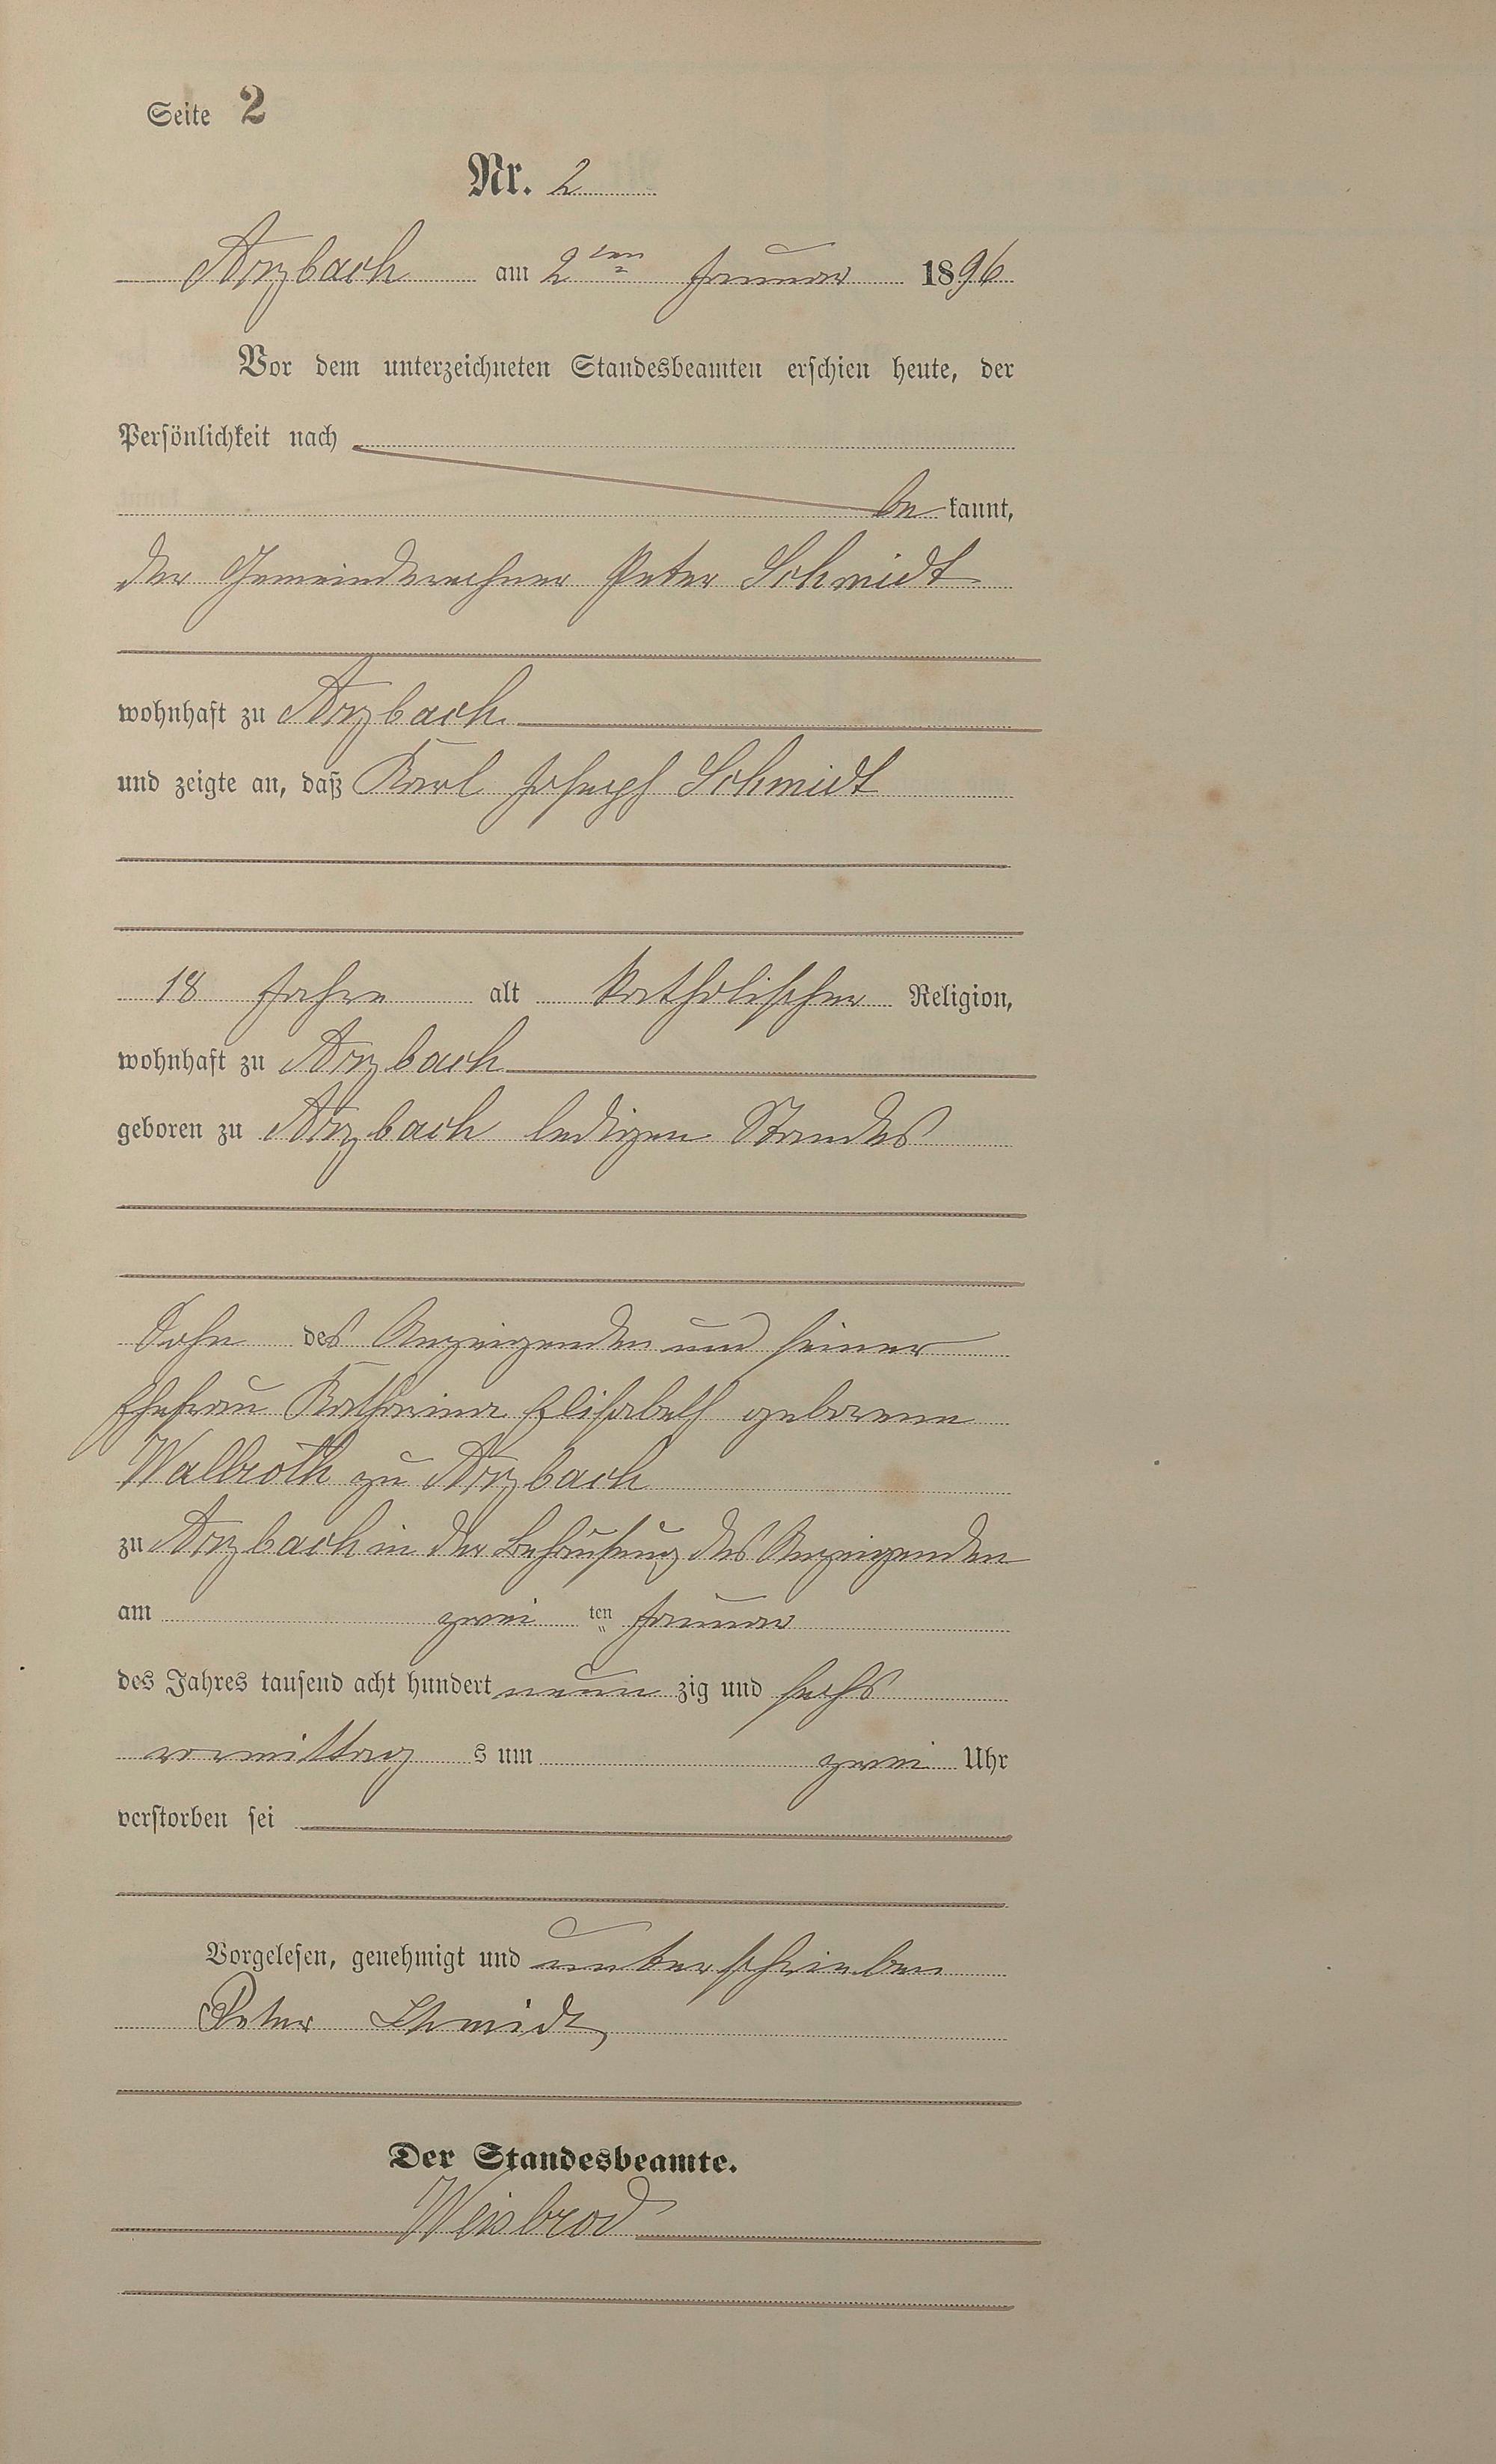 Seite 2
Nr. 2
Arzbach am 2ten Januar 1896
Vor dem unterzeichneten Standesbeamten erschien heute, der
Persönlichkeit nach
be kannt,
der Gemeinderechner Peter Schmidt
wohnhaft zu Arzbach
und zeigte an, daß Karl Joseph Schmidt
18 Jahre alt katholischer Religion,
wohnhaft zu Arzbach
geboren zu Arzbach ledigen Standes
Sohn des Anzeigenden und seiner
Ehefrau Katharina Elisabeth geborene
Wallroth zu Arzbach
zu Arzbach in der Behausung des Anzeigenden
am zwei ten Januar
des Jahres tausend acht hundert neun zig und sechs
vormittag s um zwei Uhr
verstorben sei
Vorgelesen, genehmigt und unterschrieben
Peter Schmidt
Der Standesbeamte.
Weisbrod